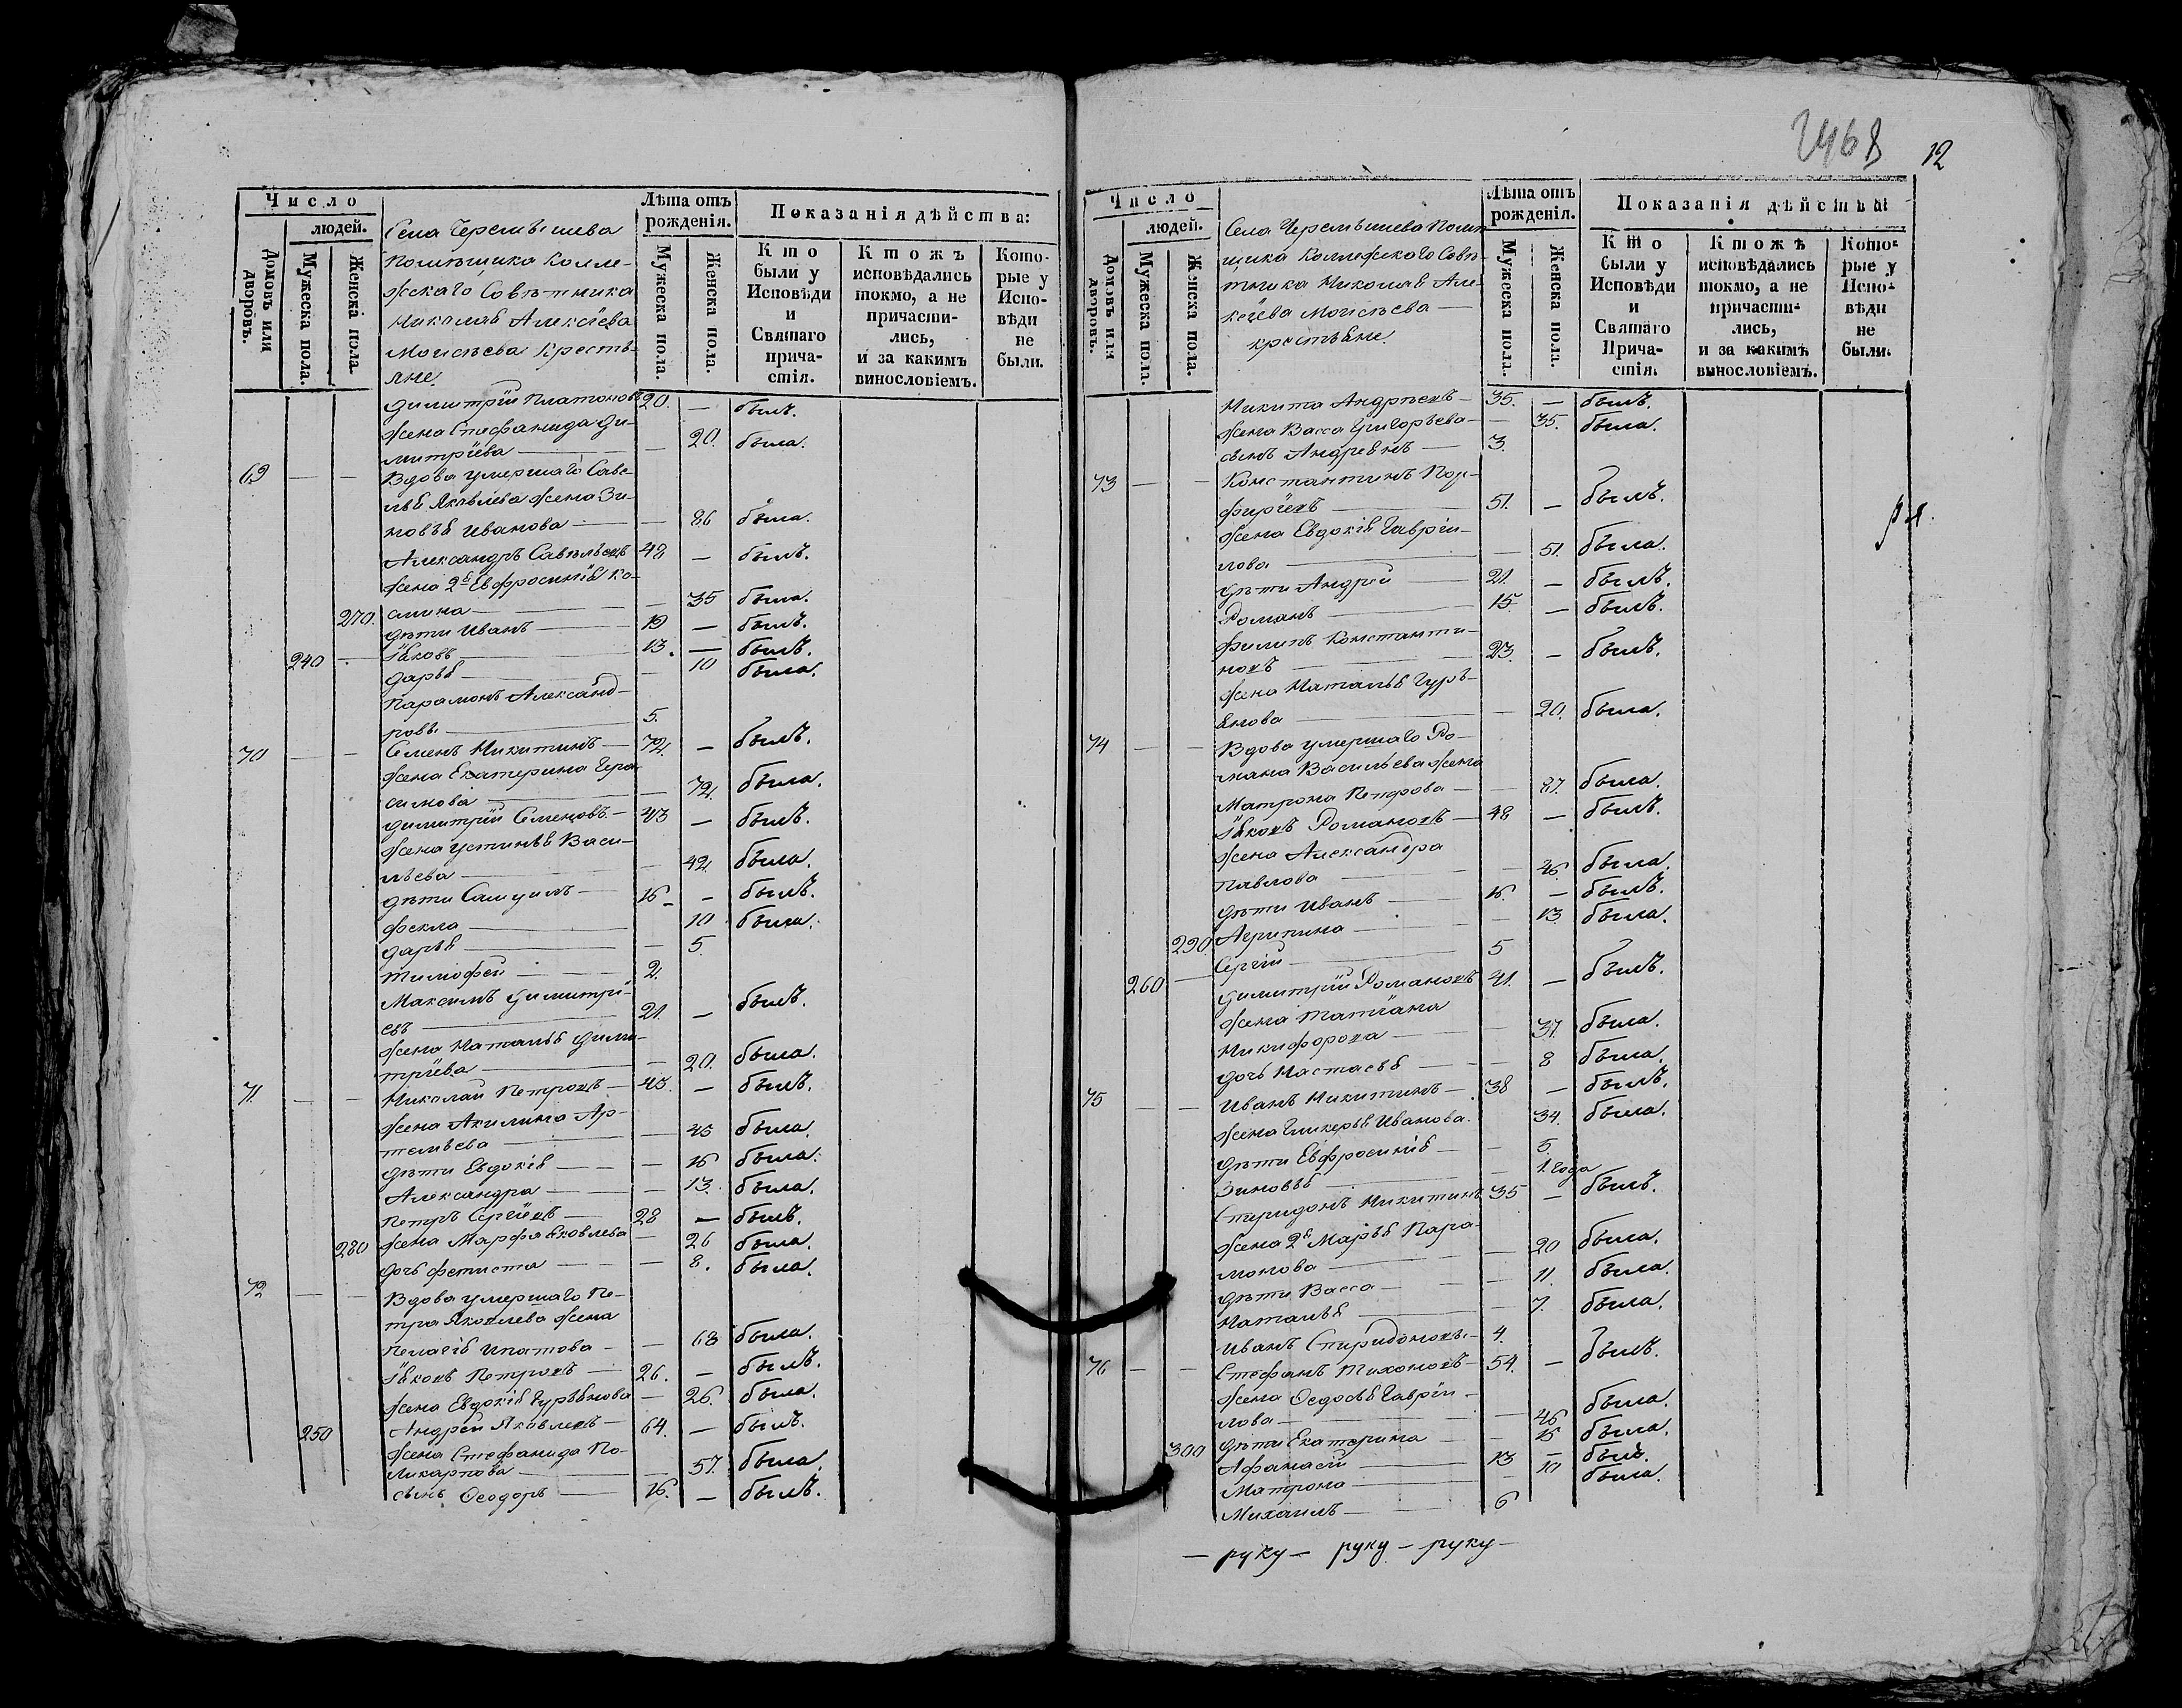 Число
людей.
Домовъ или дворовъ.
Мужеска пола.
Женска пола.
Села Черемышева
Помѣщика Колле-
жскаго Совѣтника
Николая Алексіева
Моисѣева Кресть-
яне
Лѣта отъ рожденія.
Мужеска пола.
Женска пола.
Показанія дѣйства:
Кто были у Исповѣди и Святаго причастія.
Ктожъ исповѣдались токмо, а не причастились, и за какимъ винословіемъ.
Которые у Исповѣди не были.
Димитрій Платоновъ 20. — былъ.
жена Стефанида Ди-
митріева — 20. была.
69 — — Вдова умершаго Саве-
лья Яковлева жена Зи-
новья Иванова — 86 была.
Александръ Савельевъ 48 — былъ.
жена 2я Евфросинія Ко-
270. смина — 35 была.
дѣти Иванъ — 19 — былъ.
240 — Яковъ — 13. — былъ.
Дарья — 10 была.
Парамонъ Александ-
ровъ — 5.
70 — — Семенъ Никитинъ — 72. — былъ.
жена Екатерина Гера-
симова — 72. была.
Димитрій Семеновъ — 43 — былъ.
жена Устинья Васи-
льева — 42. была.
дѣти Самуилъ — 16 — былъ.
Фекла — 10 была.
Дарья — 5.
Тимофей — 2.
Максимъ Димитрі-
евъ — 21. — былъ.
жена Наталья Дими-
тріева — 20. была.
71. — — Николай Петровъ — 45. — былъ.
жена Акилина Ар-
темьева — 45 была.
дѣти Евдокія — 16 была.
Александра — 13. была.
Петръ Сергіевъ — 28 — былъ.
280 жена Марфа Яковлева — 26 была.
дочь Фетиста — 8. была.
72 — — Вдова умершаго Пе-
тра Яковлева жена
Пелагія Ипатова — 68 была.
Яковъ Петровъ — 26. — былъ.
жена Евдокія Гурьянова — 26. была.
250 Андрей Яковлевъ — 64. — былъ.
жена Стефанида По-
ликарпова — 57. была.
сынъ Ѳеодоръ — 16. — былъ.
2468 12
Число
людей.
Домовъ или дворовъ.
Мужеска пола.
Женска пола.
Села Черемышева Помѣ-
щика Коллежскаго Совѣ-
тника Николая Але-
ксіева Моисѣева —
крестьяне.
Лѣта отъ рожденія.
Мужеска пола.
Женска пола.
Показанія дѣйства:
Кто были у Исповѣди и Святаго Причастія.
Ктожъ исповѣдались токмо, а не причастились, и за какимъ винословіемъ.
Которые у Исповѣди не были.
Никита Андреевъ — 35. — былъ.
жена Васса Григорьева — 35. была.
сынъ Андреянъ — 3.
73 — — Константинъ Пор-
фиріевъ — 51. — былъ.
жена Евдокія Гаврiи-
лова — 51. была.
дѣти Андрей — 21. — былъ.
Романъ — 15. — былъ.
Филипъ Константи-
новъ — 23. — былъ.
жена Наталья Гурь-
янова — 20. была.
74 — — Вдова умершаго Ро-
мана Васильева жена
Матрона Петрова — 87. была.
Яковъ Романовъ — 48 — былъ.
жена Александра
Павлова — 46. была.
дѣти Иванъ — 16. — былъ.
290 Агрипина — 13 была.
Сергій — 5
260 — Димитрій Романовъ 41. — былъ.
жена Татіана
Никифорова — 37. была.
дочь Настасья — 8 была.
75 — — Иванъ Никитинъ — 38 — былъ.
жена Гликерья Иванова. 34. была.
дѣти Евфросинія — 5.
Зиновья — 1. года
Спиридонъ Никитинъ 35 — былъ.
жена 2я Марья Пара-
монова — 20 была.
дѣти Васса — 11. была.
Наталья — 7. была.
Иванъ Спиридоновъ — 4.
76 — — Стефанъ Тихоновъ — 54. — былъ.
жена Ѳедосья Гавріи-
лова — 46 была.
дѣти Екатерина — 15 была.
300 Афанасій — 13 — былъ.
Матрона — 10 была.
Михаилъ — 6
— руку — руку — руку —